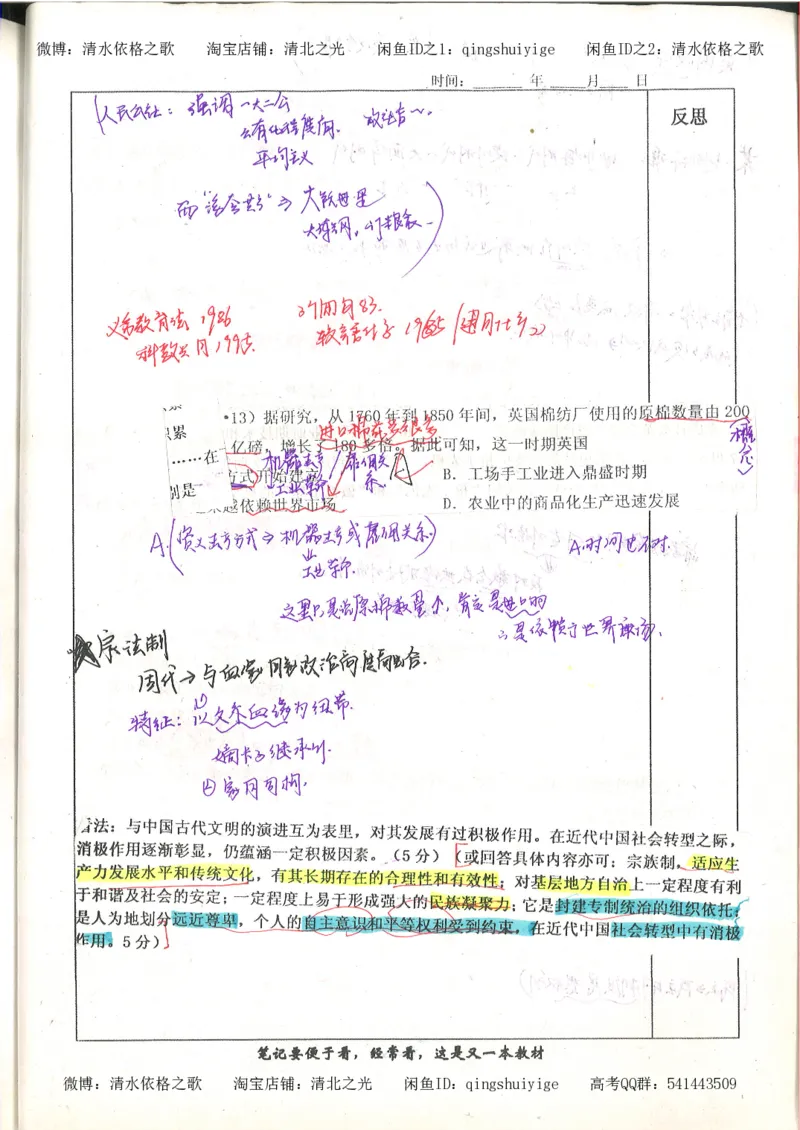 微博：清水依格之歌 淘宝店铺：清北之光 闲鱼ID之1：qingshuiyige 闲鱼ID之2：清水依格之歌
时间：____年____月____日
反思
人民公社：强调一大二公
公有化程度高.
平均主义
而
大炼钢
义务教育法 1986
科教兴国 1995
1985
累
·13）据研究，从1760年到1850年间，英国棉纺厂使用的原棉数量由200
……在
亿磅，增长了180多倍。据此可知，这一时期英国
进口棉花
机器生产 / 雇佣关系
工业革命
方式开始建立
B．工场手工业进入鼎盛时期
别是
越依赖世界市场
D．农业中的商品化生产迅速发展
A.(资义生产方式⇒机器生产或雇佣关系)
A.时间也不对.
工业革命.
这里只是说原棉数量个，肯定是进口的
∴是依赖于世界市场.
宗法制
周代→与血缘
特征：以父系血缘为纽带.
嫡长子继承制.
家国同构.
看法：与中国古代文明的演进互为表里，对其发展有过积极作用。在近代中国社会转型之际，
消极作用逐渐彰显，仍蕴涵一定积极因素。（5分）（或回答具体内容亦可：宗族制，适应生
产力发展水平和传统文化，有其长期存在的合理性和有效性；对基层地方自治上一定程度有利
于和谐及社会的安定；一定程度上易于形成强大的民族凝聚力；它是封建专制统治的组织依托；
是人为地划分远近尊卑，个人的自主意识和平等权利受到约束，在近代中国社会转型中有消极
作用。5分）
笔记要便于看，经常看，这是又一本教材
微博：清水依格之歌 淘宝店铺：清北之光 闲鱼ID：qingshuiyige 高考QQ群：541443509